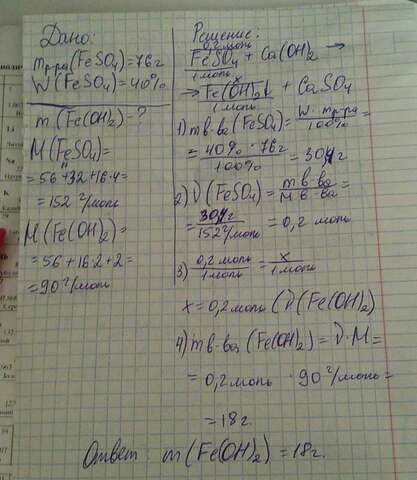 Дано:
mр-ра(FeSO4)=76г
W(FeSO4)=40%
m(Fe(OH)2)=?
M(FeSO4)=
=56+32+16·4=
=152 г/моль
M(Fe(OH)2)=
=56+16·2+2=
=90 г/моль
Решение:
0,2 моль
FeSO4 + Ca(OH)2 →
1 моль
x
→ Fe(OH)2↓ + CaSO4
1 моль
1) mв-ва(FeSO4)= W·mр-ра / 100% =
= 40%·76г / 100% = 30,4г
2) ν(FeSO4)= mв-ва / Mв-ва =
= 30,4г / 152 г/моль = 0,2 моль
3) 0,2 моль / 1 моль = x / 1 моль
x=0,2 моль (ν(Fe(OH)2)
4) mв-ва(Fe(OH)2)=ν·M=
=0,2 моль · 90 г/моль=
=18г.
Ответ: m(Fe(OH)2)=18г.